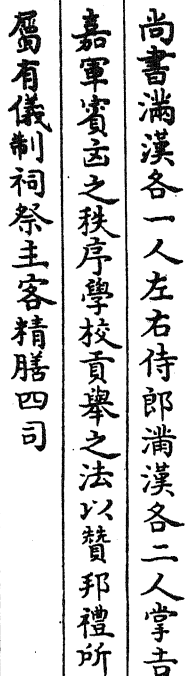 尚書滿漢各一人左右侍郎滿漢各二人掌吉
嘉軍賓凶之秩序學校貢舉之法以贊邦禮所
屬有儀制祠祭主客精膳四司